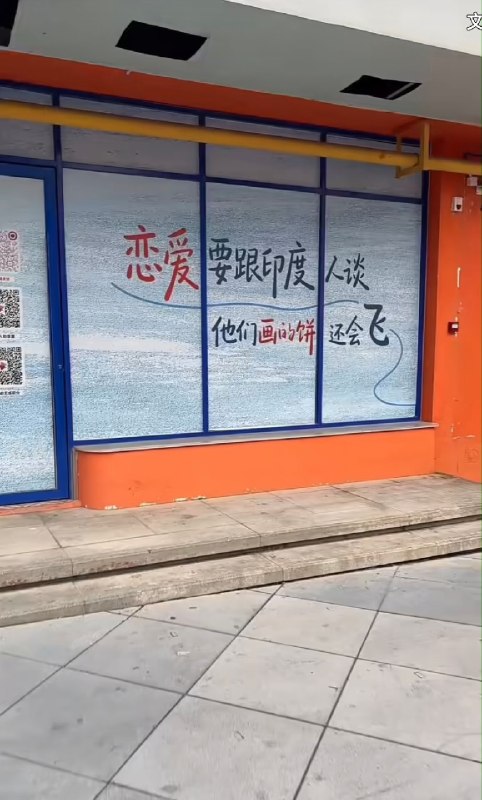 文
恋爱要跟印度人谈
他们画的饼还会飞